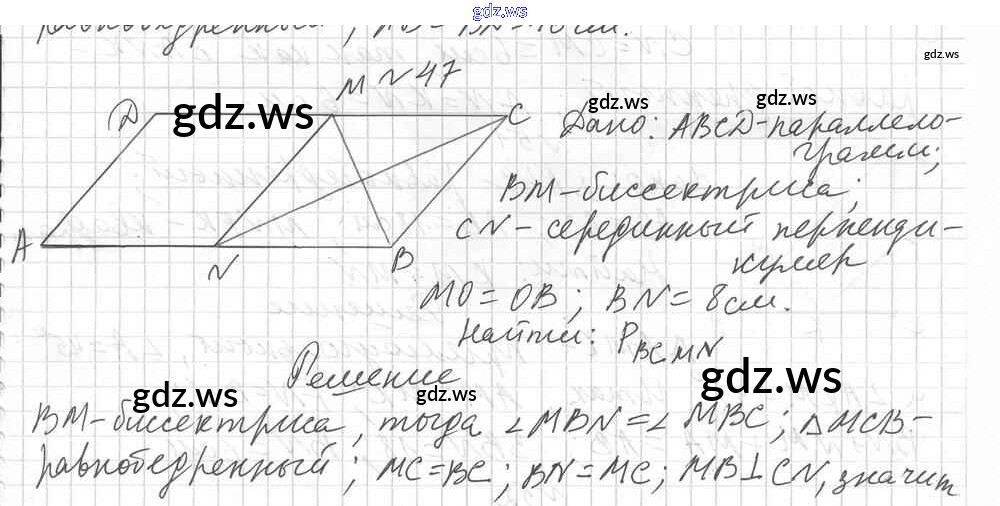 gdz.ws
равнобедренный; = BN = 10 см.
gdz.ws
N 47
D M C
gdz.ws gdz.ws gdz.ws
A N B
Дано: ABCD - параллело-
грамм;
BM - биссектриса;
CN - серединный перпенди-
куляр
MO = OB; BN = 8 см.
Найти: P BCMN
Решение
gdz.ws gdz.ws gdz.ws
BM - биссектриса, тогда ∠MBN = ∠MBC; △MCB -
равнобедренный; MC = BC; BN = MC; MB ⊥ CN, значит